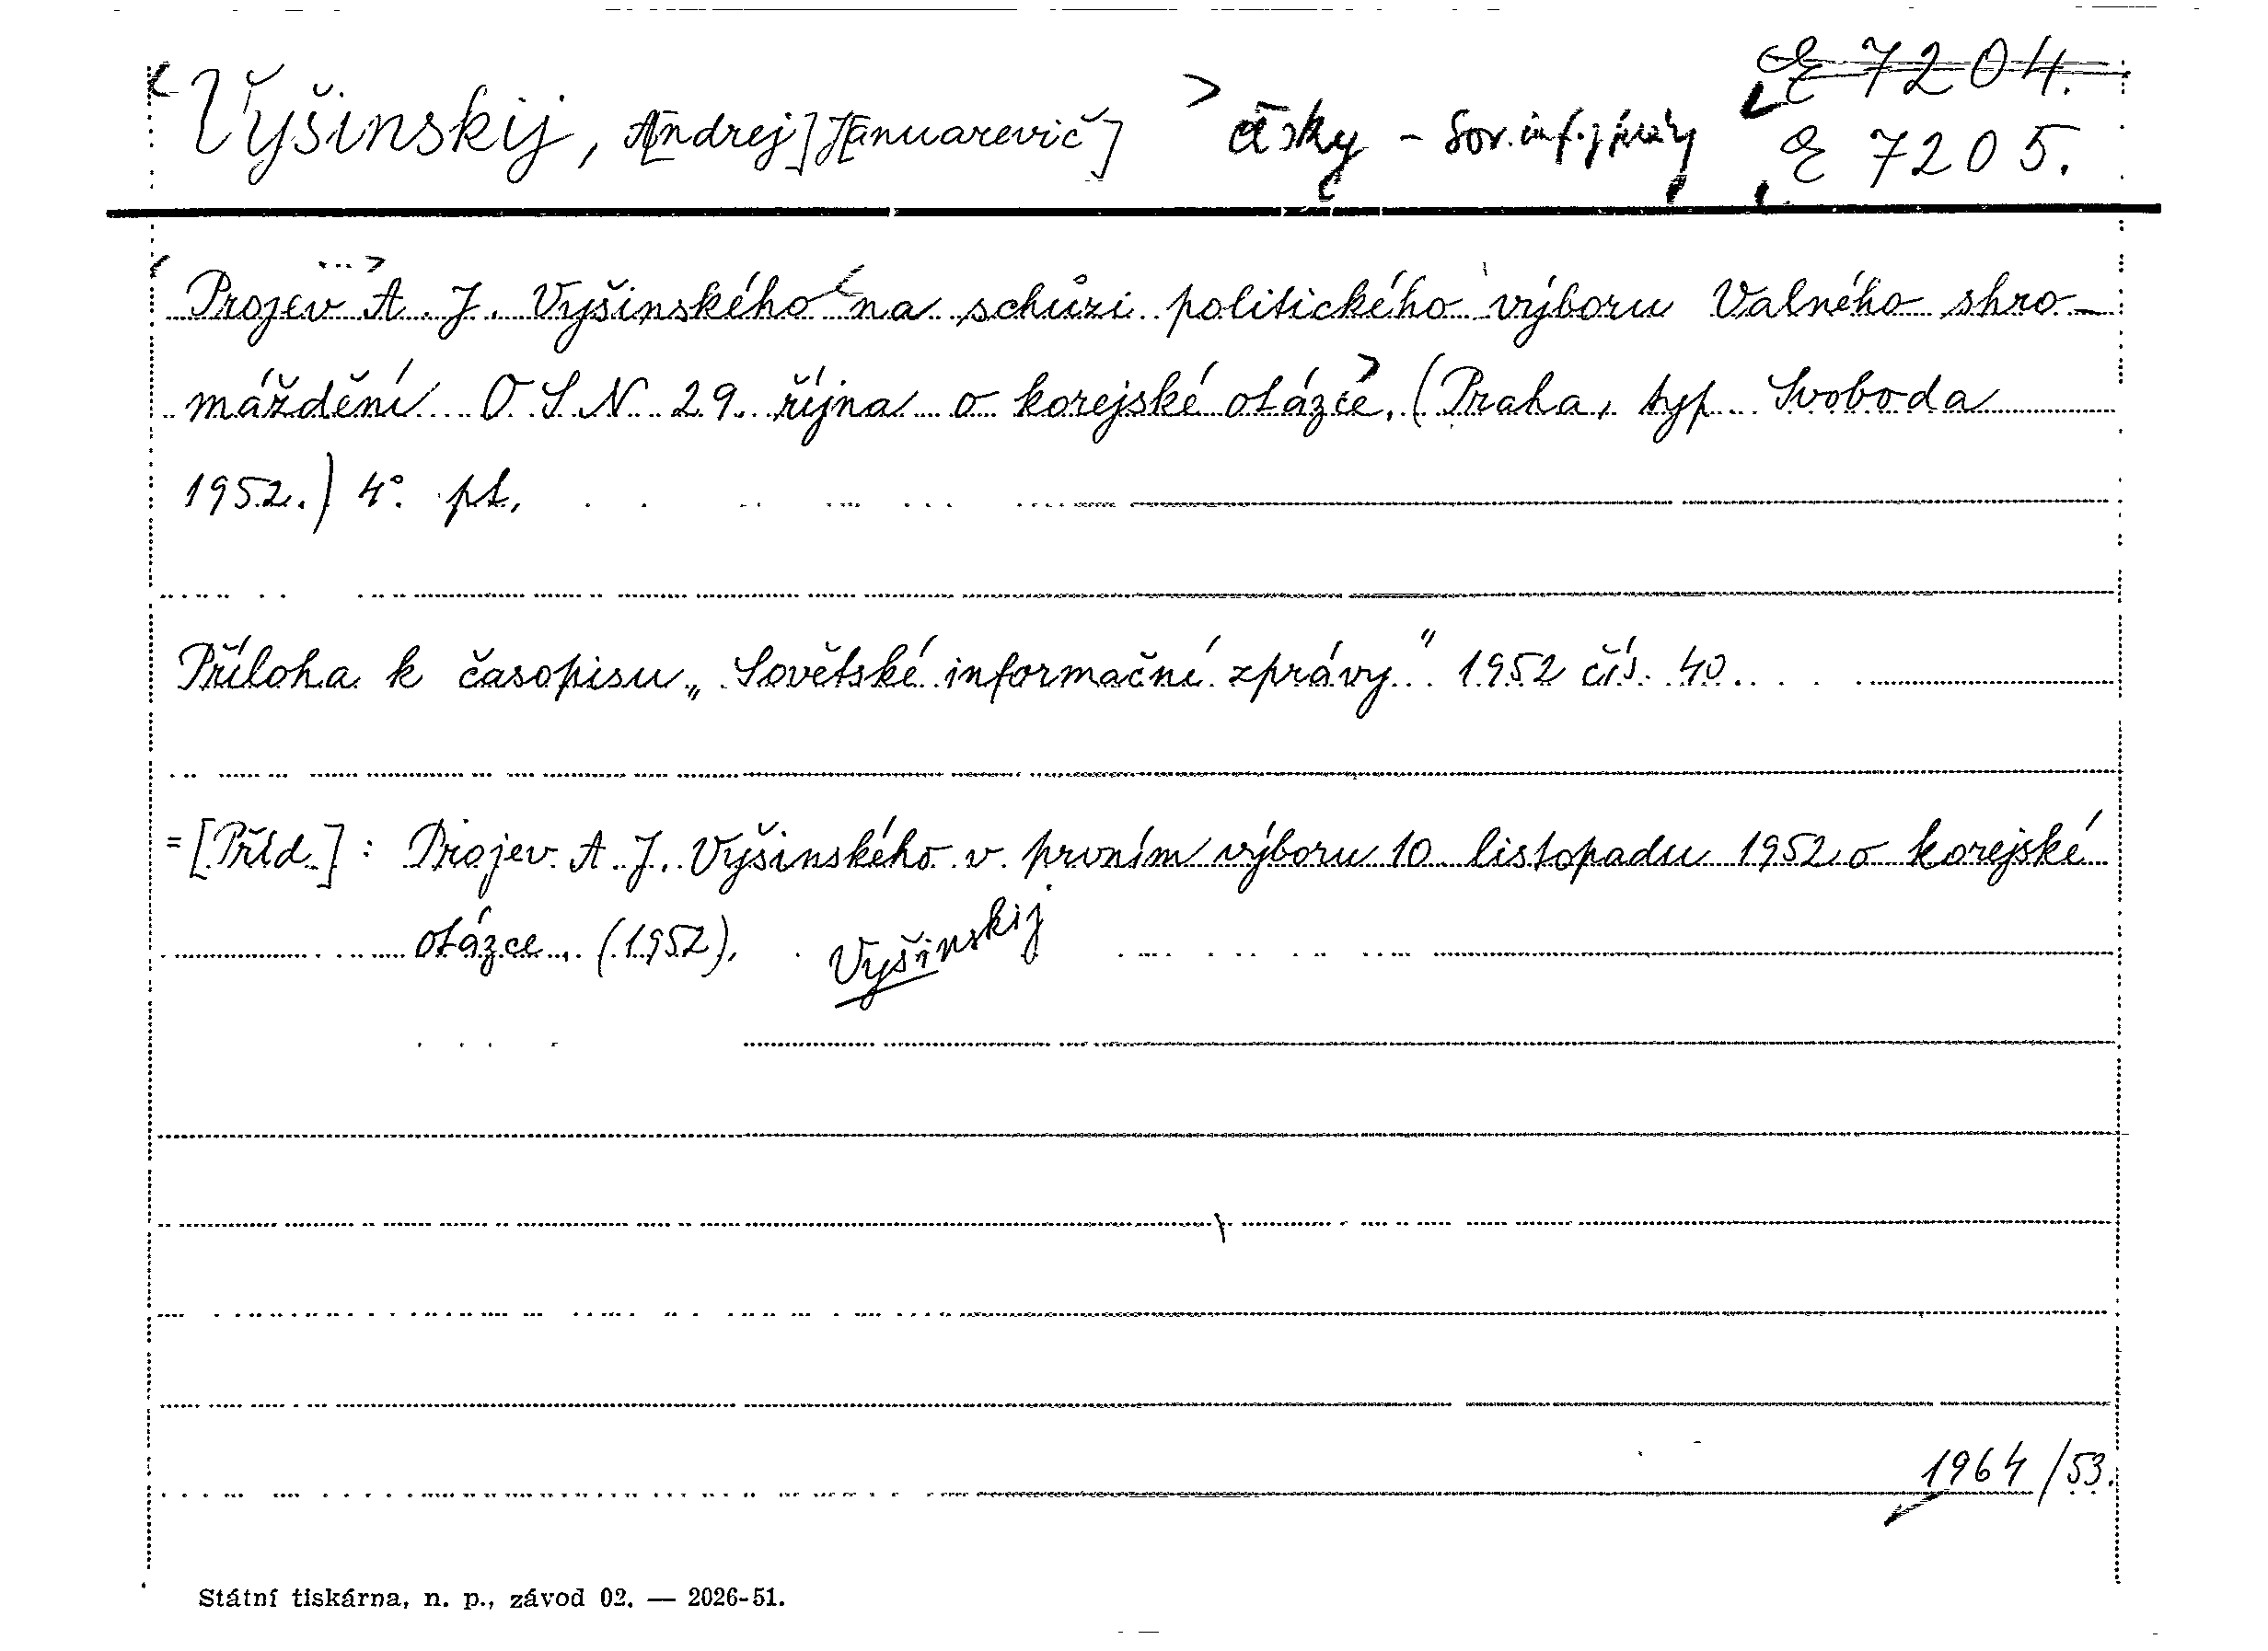 E 7204.
Vyšinskij, A[ndrej] J[anuarevič] > česky - Sov. inf. zprávy E 7205.
Projev A. J. Vyšinského na schůzi politického výboru Valného shro-
máždění OSN 29. října o korejské otázce. (Praha, typ. Svoboda
1952.) 4°. pt.
Příloha k časopisu „Sovětské informační zprávy" 1952 čís. 40.
= [Příd.] : Projev A. J. Vyšinského v prvním výboru 10 listopadu 1952 o korejské
otázce. (1952). Vyšinskij
1964/53.
Státní tiskárna, n. p., závod 02. — 2026-51.